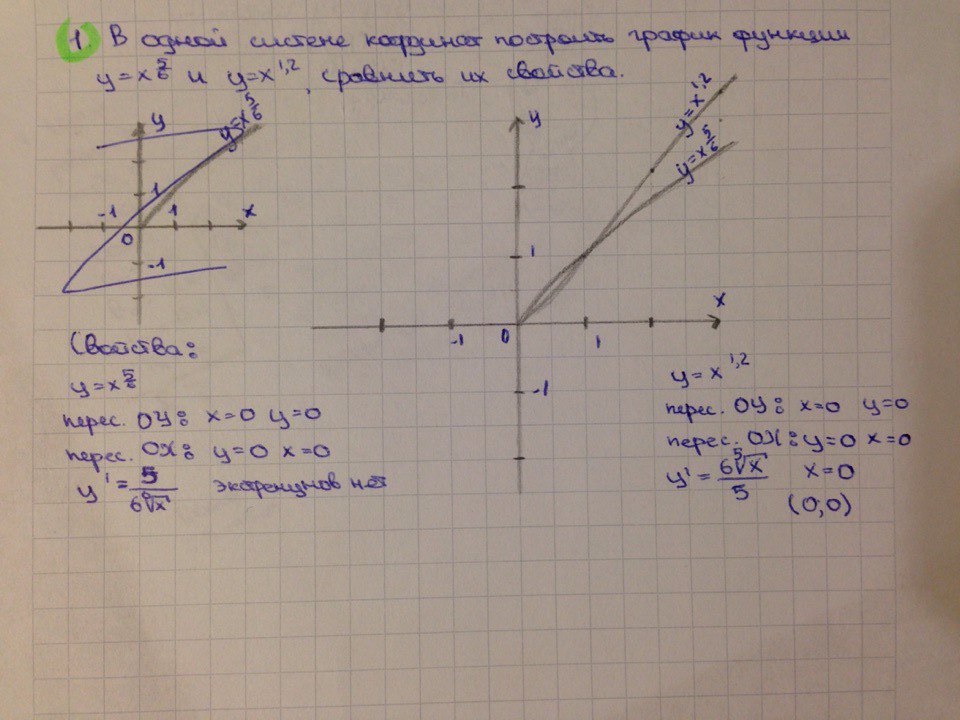 1. В одной системе координат построить график функции
y=x^{5/6} и y=x^{1,2}, сравнить их свойства.
y
y=x^{5/6}
-1
1
1
x
0
-1
y
y=x^{1,2}
y=x^{5/6}
1
x
-1
0
1
-1
Свойства:
y=x^{5/6}
перес. OY: x=0 y=0
перес. OX: y=0 x=0
y'=\frac{5}{6\sqrt[6]{x}} экстремумов нет
y=x^{1,2}
перес. OY: x=0 y=0
перес. OX: y=0 x=0
y'=\frac{6\sqrt[5]{x}}{5} x=0
(0,0)